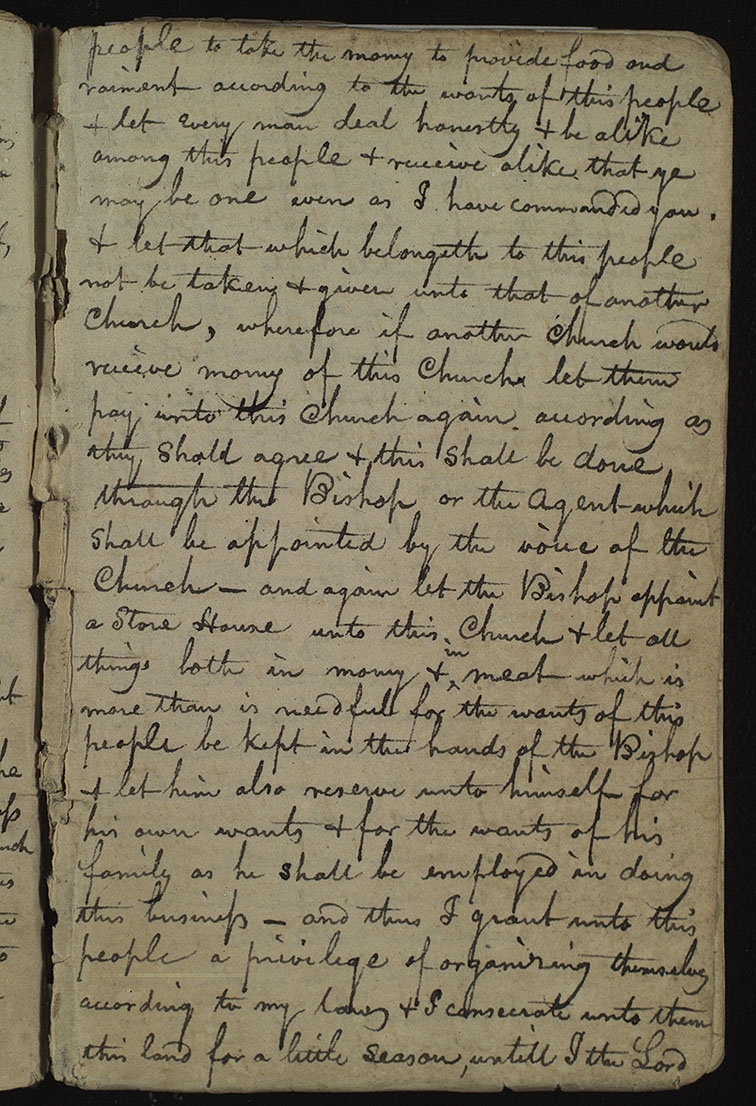 people to take the money to provide food and
raiment according to the wants of this people
& let every man deal honestly & be alike
among this people & receive alike that ye
may be one even as I have commanded you.
& let that which belongeth to this people
not be taken & given unto that of another
Church, wherefore if another Church would
receive money of this Church let them
pay unto this Church again according as
they shall agree & this shall be done
through the Bishop or the agent which
shall be appointed by the voice of the
Church — and again let the Bishop appoint
a Store House unto this Church & let all
things both in money & in meat which is
more than is needful for the wants of this
people be kept in the hands of the Bishop
& let him also reserve unto himself for
his own wants & for the wants of his
family as he shall be employed in doing
this business — and thus I grant unto this
people a privilege of organizing themselves
according to my laws & I consecrate unto them
this land for a little season, untill I the Lord